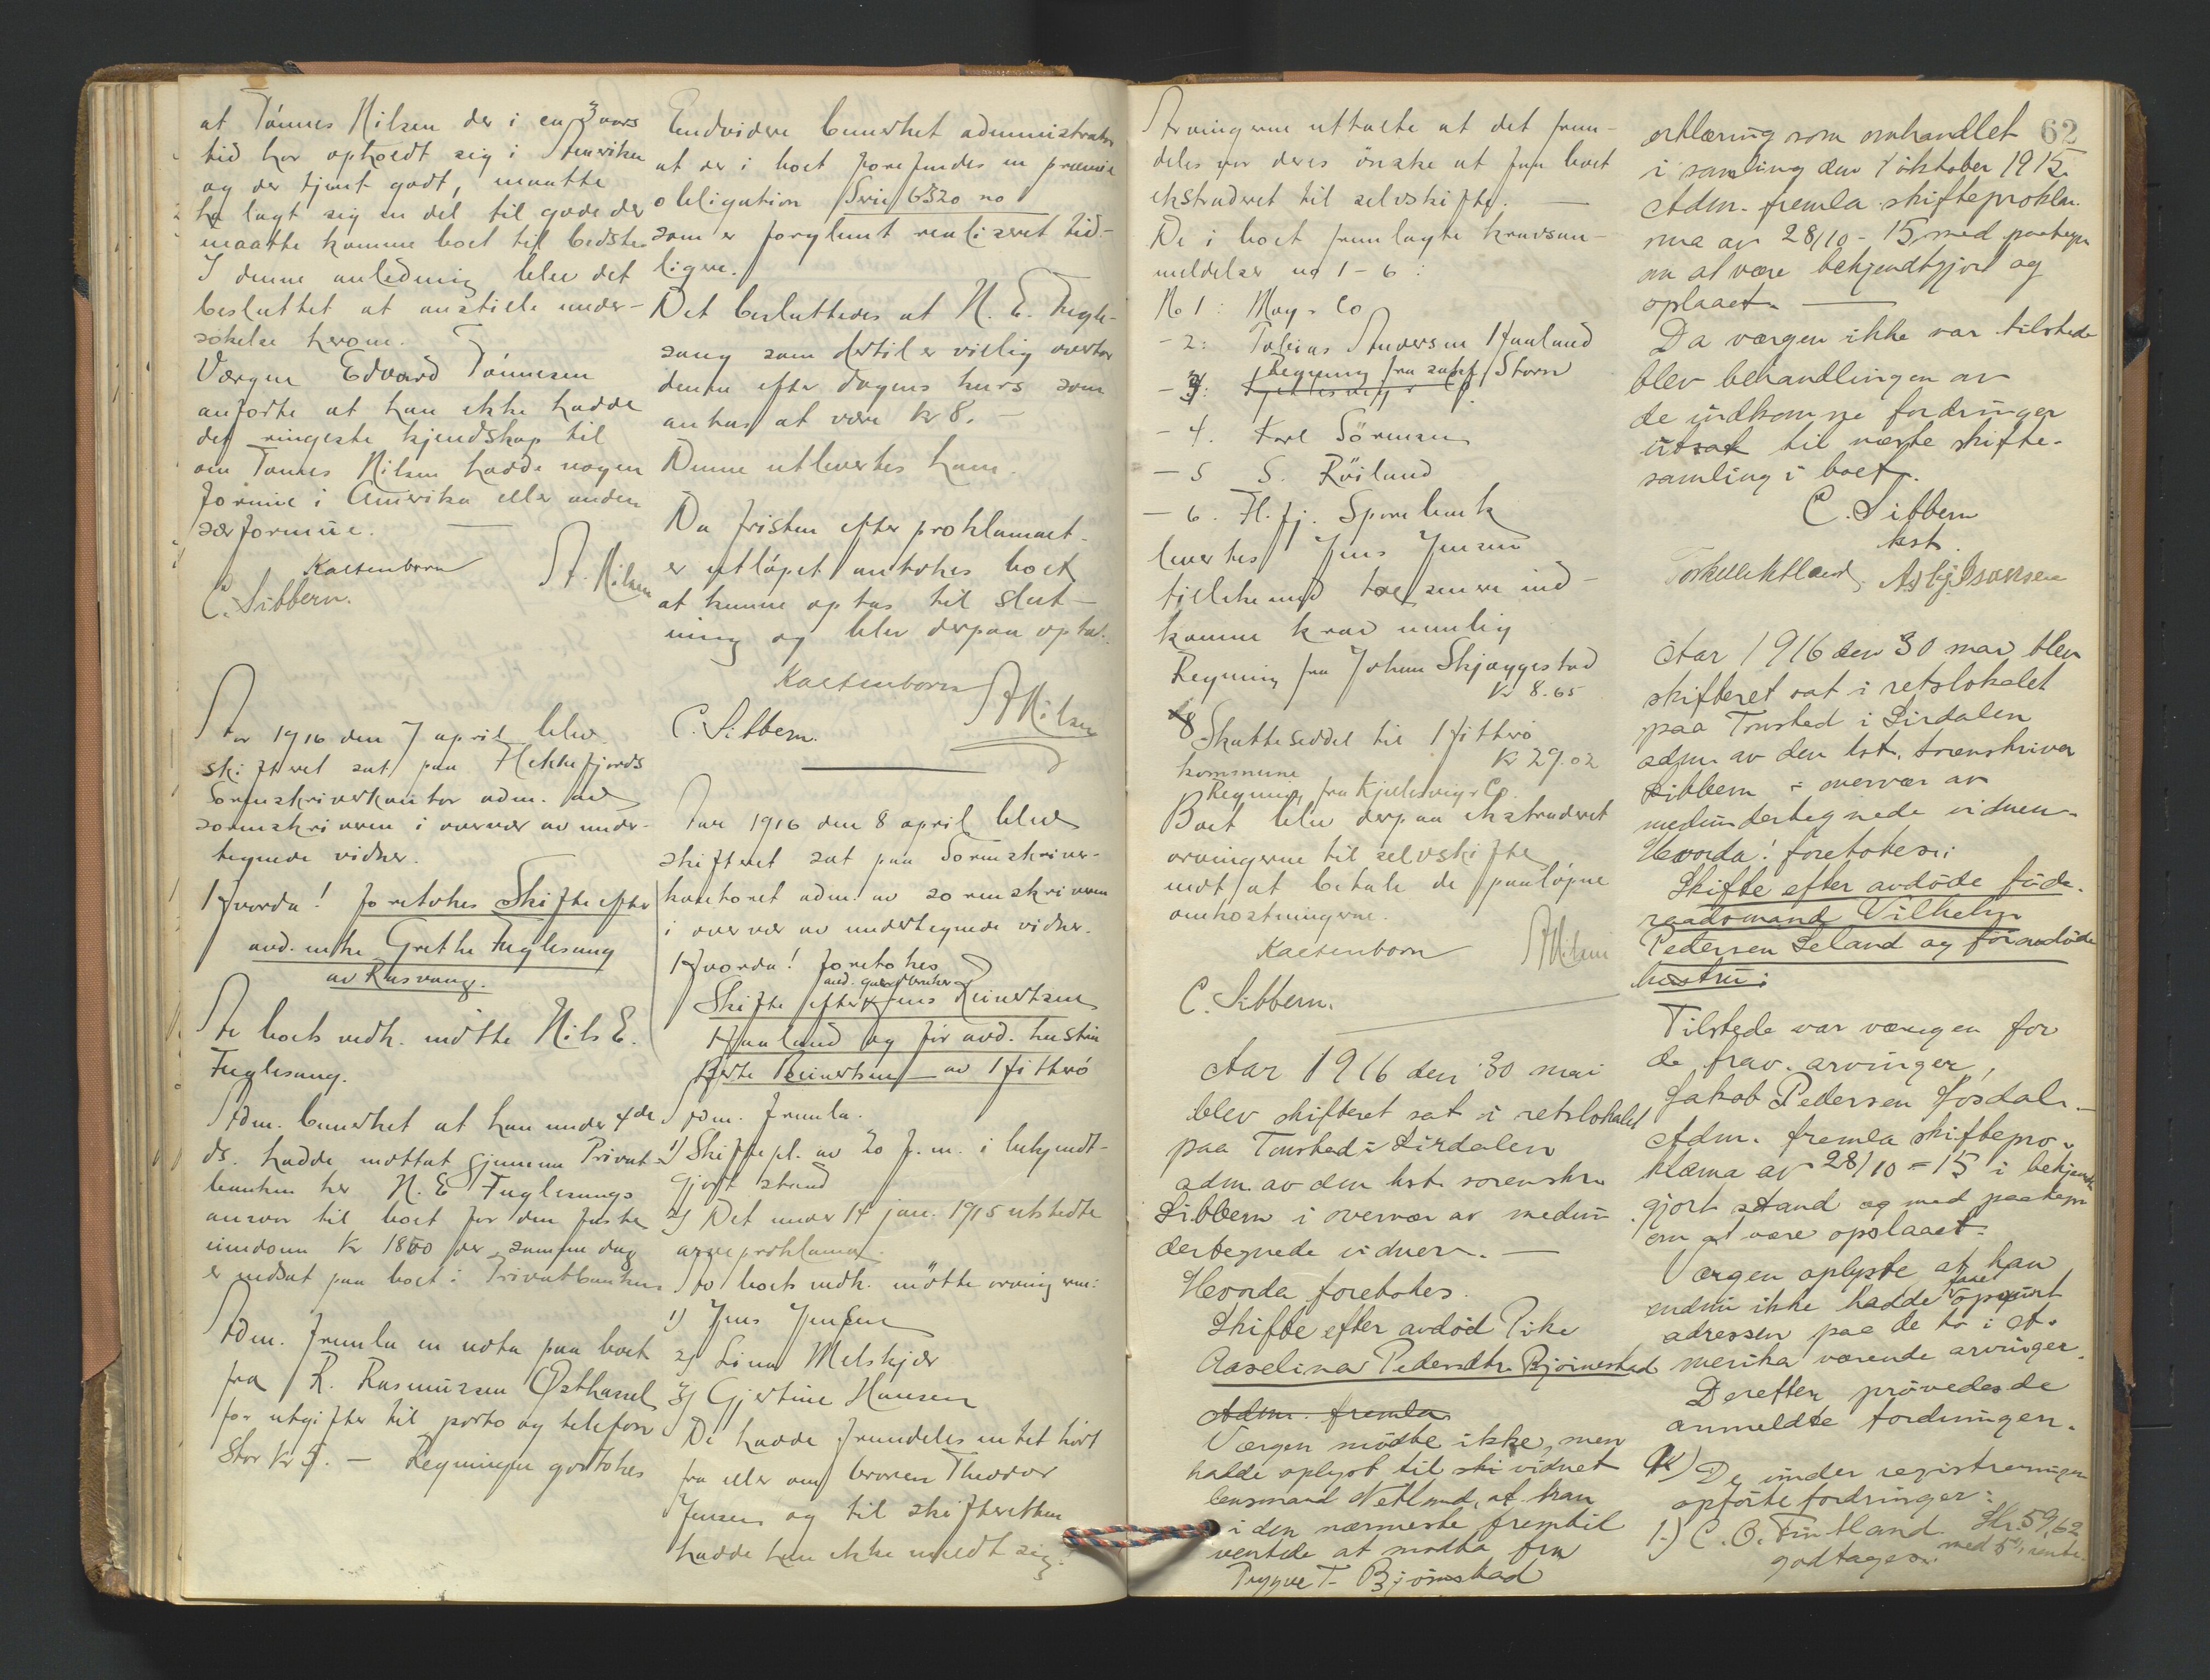 at Tönnes Nilsen der i en 3 aars
tid har opholdt sig i Amerika
og der tjent godt, maatte
ha lagt sig en del til gode der
maatte komme boet til bedste.
I denne anledning blev det
besluttet at anstille under-
sökelse herom.
Værgen Edvard Tönnesen
anförte at han ikke hadde
det ringeste kjendskap til
om Tönnes Nilsen hadde nogen
formue i Amerika eller anden
særformue.
Kaltenborn
C. Sibbern. A. Nilsen
Aar 1916 den 7 april blev
skifteret sat paa Flekkefjords
Sorenskriverkontor adm. av
sorenskriveren i overvær av under-
tegnede vidner.
Hvorda! foretokes Skifte efter
avd. enke Grethe Fuglesang
av Rasvaag.
Paa boets vedk. mötte Nils E.
Fuglesang.
Adm. bemerket at han under 4de
ds. hadde mottat gjennem Privat-
banken her N. E. Fuglesangs
ansvar til boet for den faste
eiendom Kr 1800 der samme dag
er indsat paa boet i Privatbanken
Adm. fremla en nota paa boet
fra R. Rasmussen Østhassel
for utgifter til porto og telefon
Stor Kr 5. — Regningen godtokes
Endvidere bemerket administrator
at der i boet forefindes en præmie
obligation Serie 6320 no
som er forglemt realiseret tid-
ligere.
Det besluttedes at N. E. Fugle-
sang som dertil er villig overtar
denne efter dagens kurs som
antas at være kr 8. —
Denne utlevertes ham.
Da fristen efter proklamaet
er utlöpet antokes boet
at kunne optas til slut-
ning og blev derpaa optat.
Kaltenborn
C. Sibbern. A Nilsen
Aar 1916 den 8 april blev
skifteret sat paa Sorenskriver-
kontoret adm. av sorenskriveren
i overvær av undertegnede vidner.
Hvorda! foretokes
avd. gaardbruker
Skifte efter Jens Reinertsen
Haaland og för avd. hustru
Berte Reinertsen av Hitterö
Adm. fremla.
1) Skiftepl. av 20 f.m. i bekjendt-
gjort stand
2) Det under 14 jan. 1915 utstedte
arveproklama.
Paa boets vedk. mötte arvingerne:
1) Jens Jensen
2) Lina Melskjær
3) Gjertine Hansen
De hadde fremdeles intet hört
fra eller om broren Theodor
Jensen og til skifteretten
hadde han ikke meldt sig.
Arvingerne uttalte at det frem-
deles var deres önske at faa boet
ekstraderet til selvskifte. —
De i boet fremlagte kravsan-
meldelser no 1 - 6 :
No 1: Moy & Co
- 2: Tobias Andersen Haaland
Regning fra sakf. Storn
- 3:
- 4. Karl Sörensen
- 5 S. Röiland
- 6. Fl.fj. Sparebank
levertes Jens Jensen
tillikemed to senere ind-
komne krav nemlig
Regning fra Johan Skjæggestad
Kr 8.65
8 Skatteseddel til Hitterö
kommune Kr 29.02
Regning fra Kjelesvig & Co.
Boet blev derpaa ekstraderet
arvingerne til selvskifte
mot at betale de paalöpne
omkostninger.
Kaltenborn A Nilsen
C. Sibbern.
Aar 1916 den 30 mai
blev skifteret sat i retslokalet
paa Tonstad i Sirdalen
adm. av den kst. sorenskr.
Sibbern i overvær av medun
dertegnede vidner. —
Hvorda foretokes.
Skifte efter avdöd Pike
Aaselina Pedersdtr. Bjömestad
Adm. fremla
Værgen mötte ikke, men
hadde oplyst til skr. vidnet
lensmand Netland, at han
i den nærmeste fremtid
ventede at motta fra
Trygve T. Bjömestad
62
erklæring som omhandlet
i samling den 7 oktober 1915.
Adm. fremla skifteprokla.
ma av 28/10 - 15 med paategn
om at være bekjendtgjort og
oplaaet. —
Da værgen ikke var tilstede
blev behandlingen av
de indkomne fordringer
utsat til næste skifte-
samling i boet.
C. Sibbern
kst.
Torkell Netland. Asbj. Isaksen
Aar 1916 den 30 mai blev
skifteret sat i retslokalet
paa Tonstad i Sirdalen
adm. av den kst. sorenskriver
Sibbern i overvær av
medundertegnede vidner.
Hvorda! foretokes:
Skifte efter avdöde föde-
raadsmand Vilhelm
Pedersen Leland og för avdöde
hustru:
Tilstede var værgen for
de frav. arvinger,
Jakob Pedersen Jösdal. —
Adm. fremla skiftepro-
klama av 28/10 - 15 i bekjendt
gjort stand og med paategn
om at være opslaaet.
Værgen oplyste at han
endnu ikke hadde faaet opspurt
adressen paa de to i A-
merika værende arvinger.
Derefter prövedes de
anmeldte fordringer.
A) De under registreringen
opförte fordringer:
1.) C. O. Fintland Kr. 59,62
med 5% rente.
godtages.